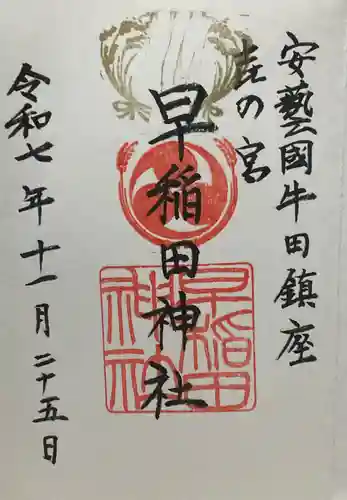 安藝國牛田鎮座
㐂の宮
早稲田神社
早稲田神社
令和七年十一月二十五日